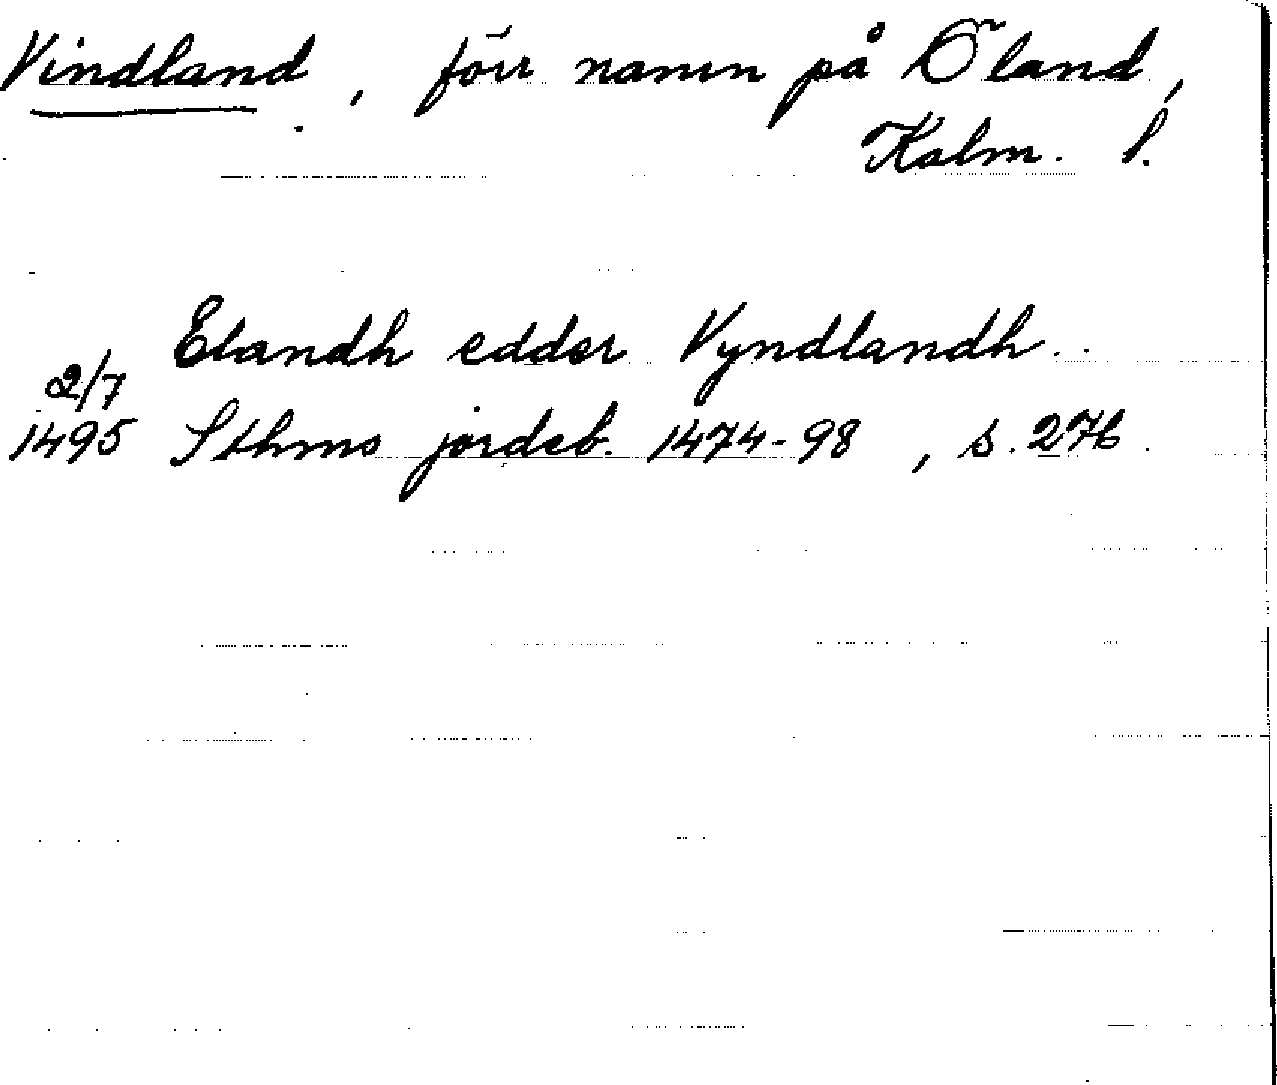 Vindland, förr namn på Öland,
Kalm. l.
Elandh edder Vyndlandh.
2/7
1495 Sthms jordeb. 1474-98, s. 276.